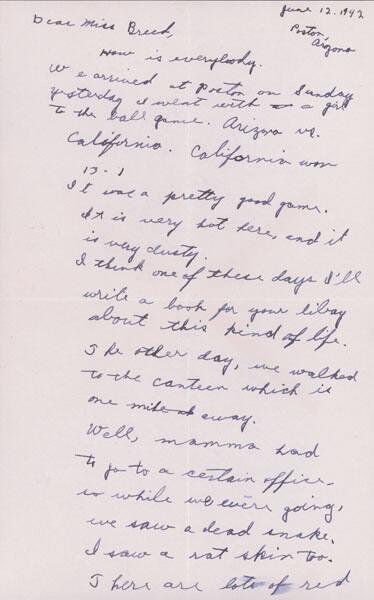 June 12, 1942
Poston,
Arizona
Dear Miss Breed,
How is everybody.
We arrived at Poston on Sunday
yesterday I went with a girl
to the ball game. Arizona vs.
California. California won
13-1
It was a pretty good game.
It is very hot here, and it
is very dusty.
I think one of these days I'll
write a book for your libay
about this kind of life.
The other day, we walked
to the canteen which is
one mile away.
Well, mamma had
to go to a certain office.
so while we were going,
we saw a dead snake.
I saw a rat skin too.
There are lots of red